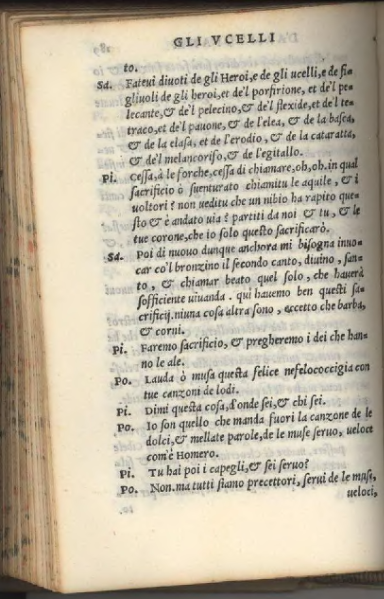 GLI VCELLI
to.
Sa. Fateui diuoti de gli Heroi, e de gli ucelli, e de fi-
gliuoli de gli heroi, et de'l porfirione, et de'l pe-
lecante, & de'l pelecino, & de'l flexide, et de'l te-
traco, et de'l pauone, & de l'elea, & de la basca,
& de la elasa, et de l'erodio, & de la cataratta,
& de'l melancoriso, & de l'egitallo.
Pi. Cessa, à le forche, cessa di chiamare, oh, oh. in qual
sacrificio ò suenturato chiamitu le aquile, & i
uoltori? non ueditu che un nibio ha rapito que-
sto & è andato uia? partiti da noi & tu, & le
tue corone, che io solo questo sacrificarò.
Sa. Poi di nuouo dunque anchora mi bisogna inuo-
car co'l bronzino il secondo canto, diuino, san-
to, & chiamar beato quel solo, che hauerà
sofficiente uiuanda. qui hauemo ben questi sa-
crificij. niuna cosa altra sono, eccetto che barba,
& corni.
Pi. Faremo sacrificio, & pregheremo i dei che han-
no le ale.
Po. Lauda ò musa questa felice nefelococcigia con
tue canzoni de lodi.
Pi. Dimi questa cosa, d'onde sei, & chi sei.
Po. Io son quello che manda fuori la canzone de le
dolci, & mellate parole, de le muse seruo, ueloce
com'è Homero.
Pi. Tu hai poi i capegli, & sei seruo?
Po. Non. ma tutti siamo precettori, serui de le muse,
ueloci,